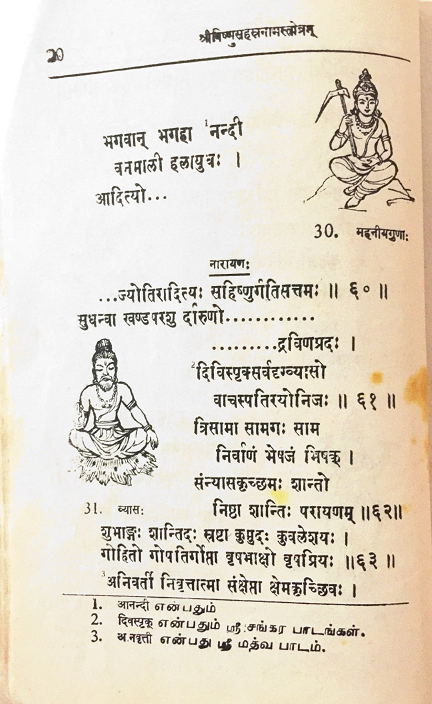 20
श्रीविष्णुसहस्रनामस्तोत्रम्
भगवान् भगहा ¹नन्दी
वनमाली हलायुधः ।
आदित्यो...
30. महनीयगुणाः
नारायणः
...ज्योतिरादित्यः सहिष्णुर्गतिसत्तमः ॥ ६० ॥
सुधन्वा खण्डपरशु र्दारुणो............
.........द्रविणप्रदः ।
²दिविस्पृक्सर्वदृग्व्यासो
वाचस्पतिरयोनिजः ॥ ६१ ॥
त्रिसामा सामगः साम
निर्वाणं भेषजं भिषक् ।
संन्यासकृच्छमः शान्तो
31. व्यासः
निष्ठा शान्तिः परायणम् ॥६२॥
शुभाङ्गः शान्तिदः स्रष्टा कुमुदः कुवलेशयः ।
गोहितो गोपतिर्गोप्ता वृषभाक्षो वृषप्रियः ॥६३॥
³अनिवर्ती निवृत्तात्मा संक्षेप्ता क्षेमकृच्छिवः ।
1. आनन्दी என்பதும்
2. दिवस्पृक् என்பதும் ஸ்ரீ சங்கர பாடங்கள்.
3. என்பது ஸ்ரீ மத்வ பாடம்.